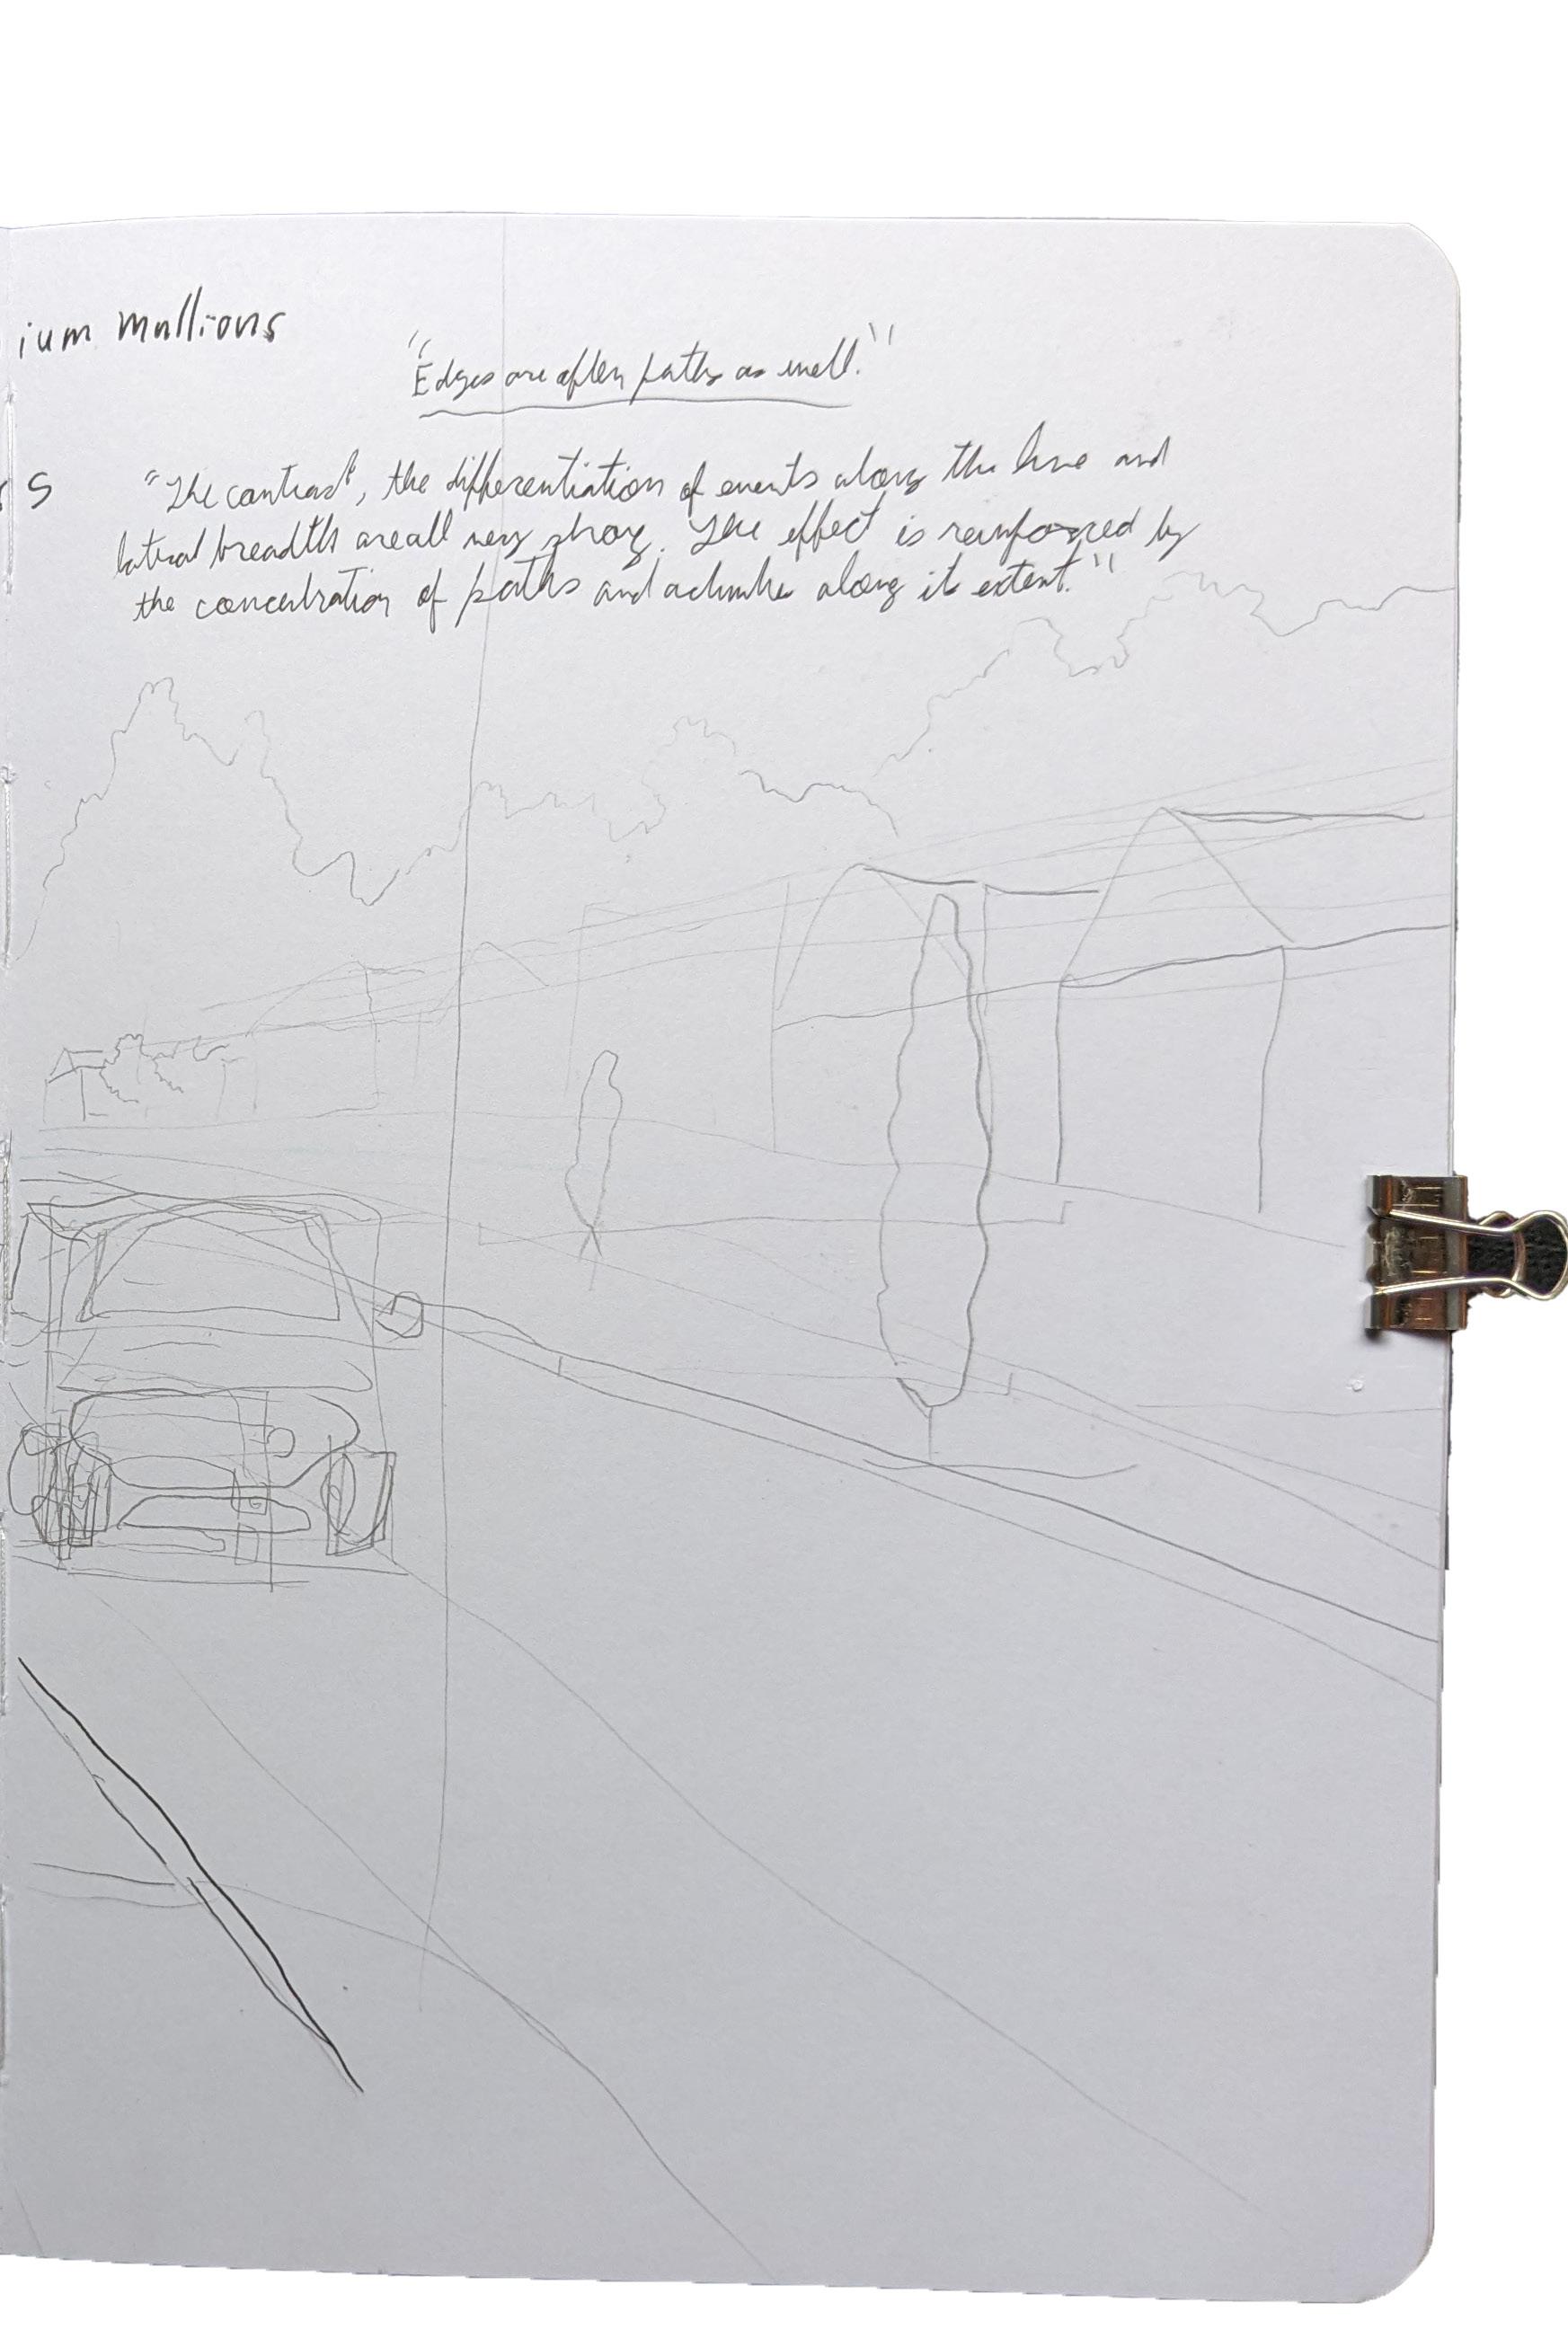 ium mullions
"Edges are often paths as well."
s
"The contrast, the differentiation of events along the line and
lateral breadth are all very strong. The effect is reinforced by
the concentration of paths and along it extent."